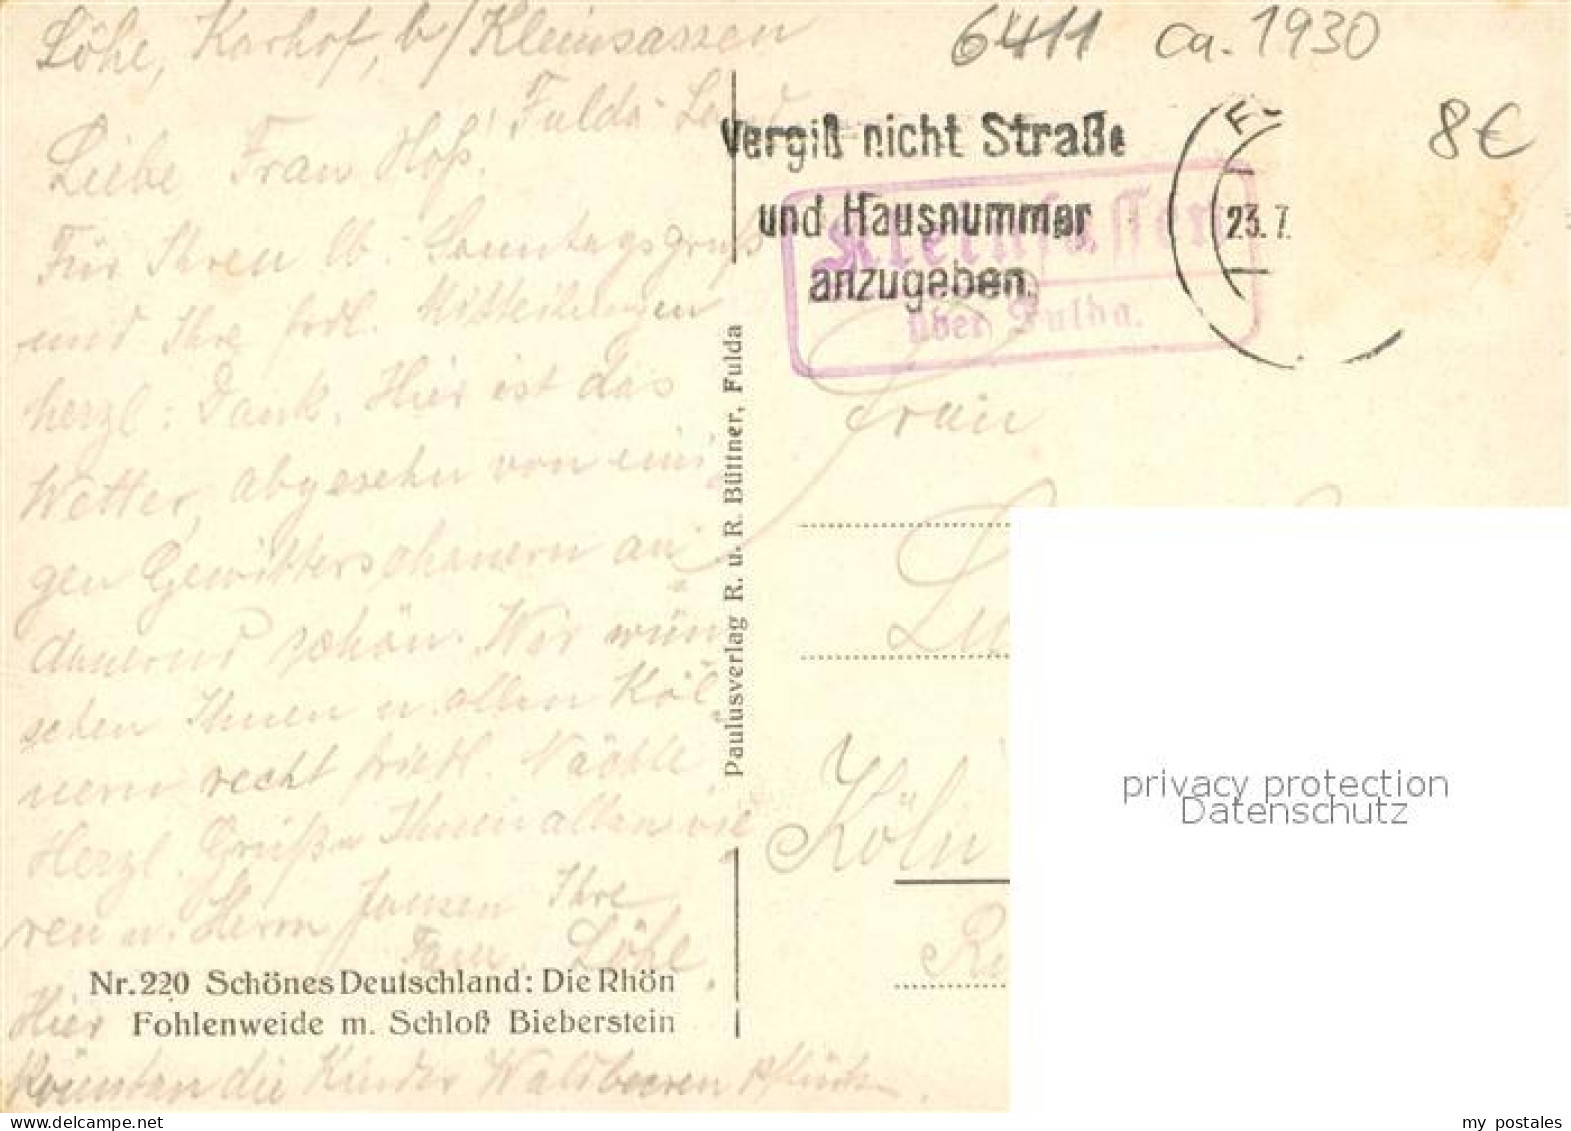 Löhe, Karhof, b/Kleinsassen
Fulda-Land
Liebe Frau Hoß!
Für Ihren lb. Sonntagsgruß
und Ihre frdl. Mitteilungen
herzl. Dank. Hier ist das
Wetter, abgesehn von eini
gen Gewitterschauern an
dauernd schön. Wir wün
schen Ihnen u. allen Köl
nern recht friedl. Nächte
Herzl. Grüße Ihnen allen
ren u. Herrn Jansen Ihre
Fam. Löhe.
Hier
könnten die Kinder Waldbeeren pflücken.
Nr. 220 Schönes Deutschland: Die Rhön
Fohlenweide m. Schloß Bieberstein
Paulusverlag R. u. R. Büttner, Fulda
6411 ca. 1930
8€
Vergiß nicht Straße
und Hausnummer
anzugeben.
23.7.
Kleinsassen
über Fulda.
Frau
Köln
privacy protection
Datenschutz
www.delcampe.net
my_postales